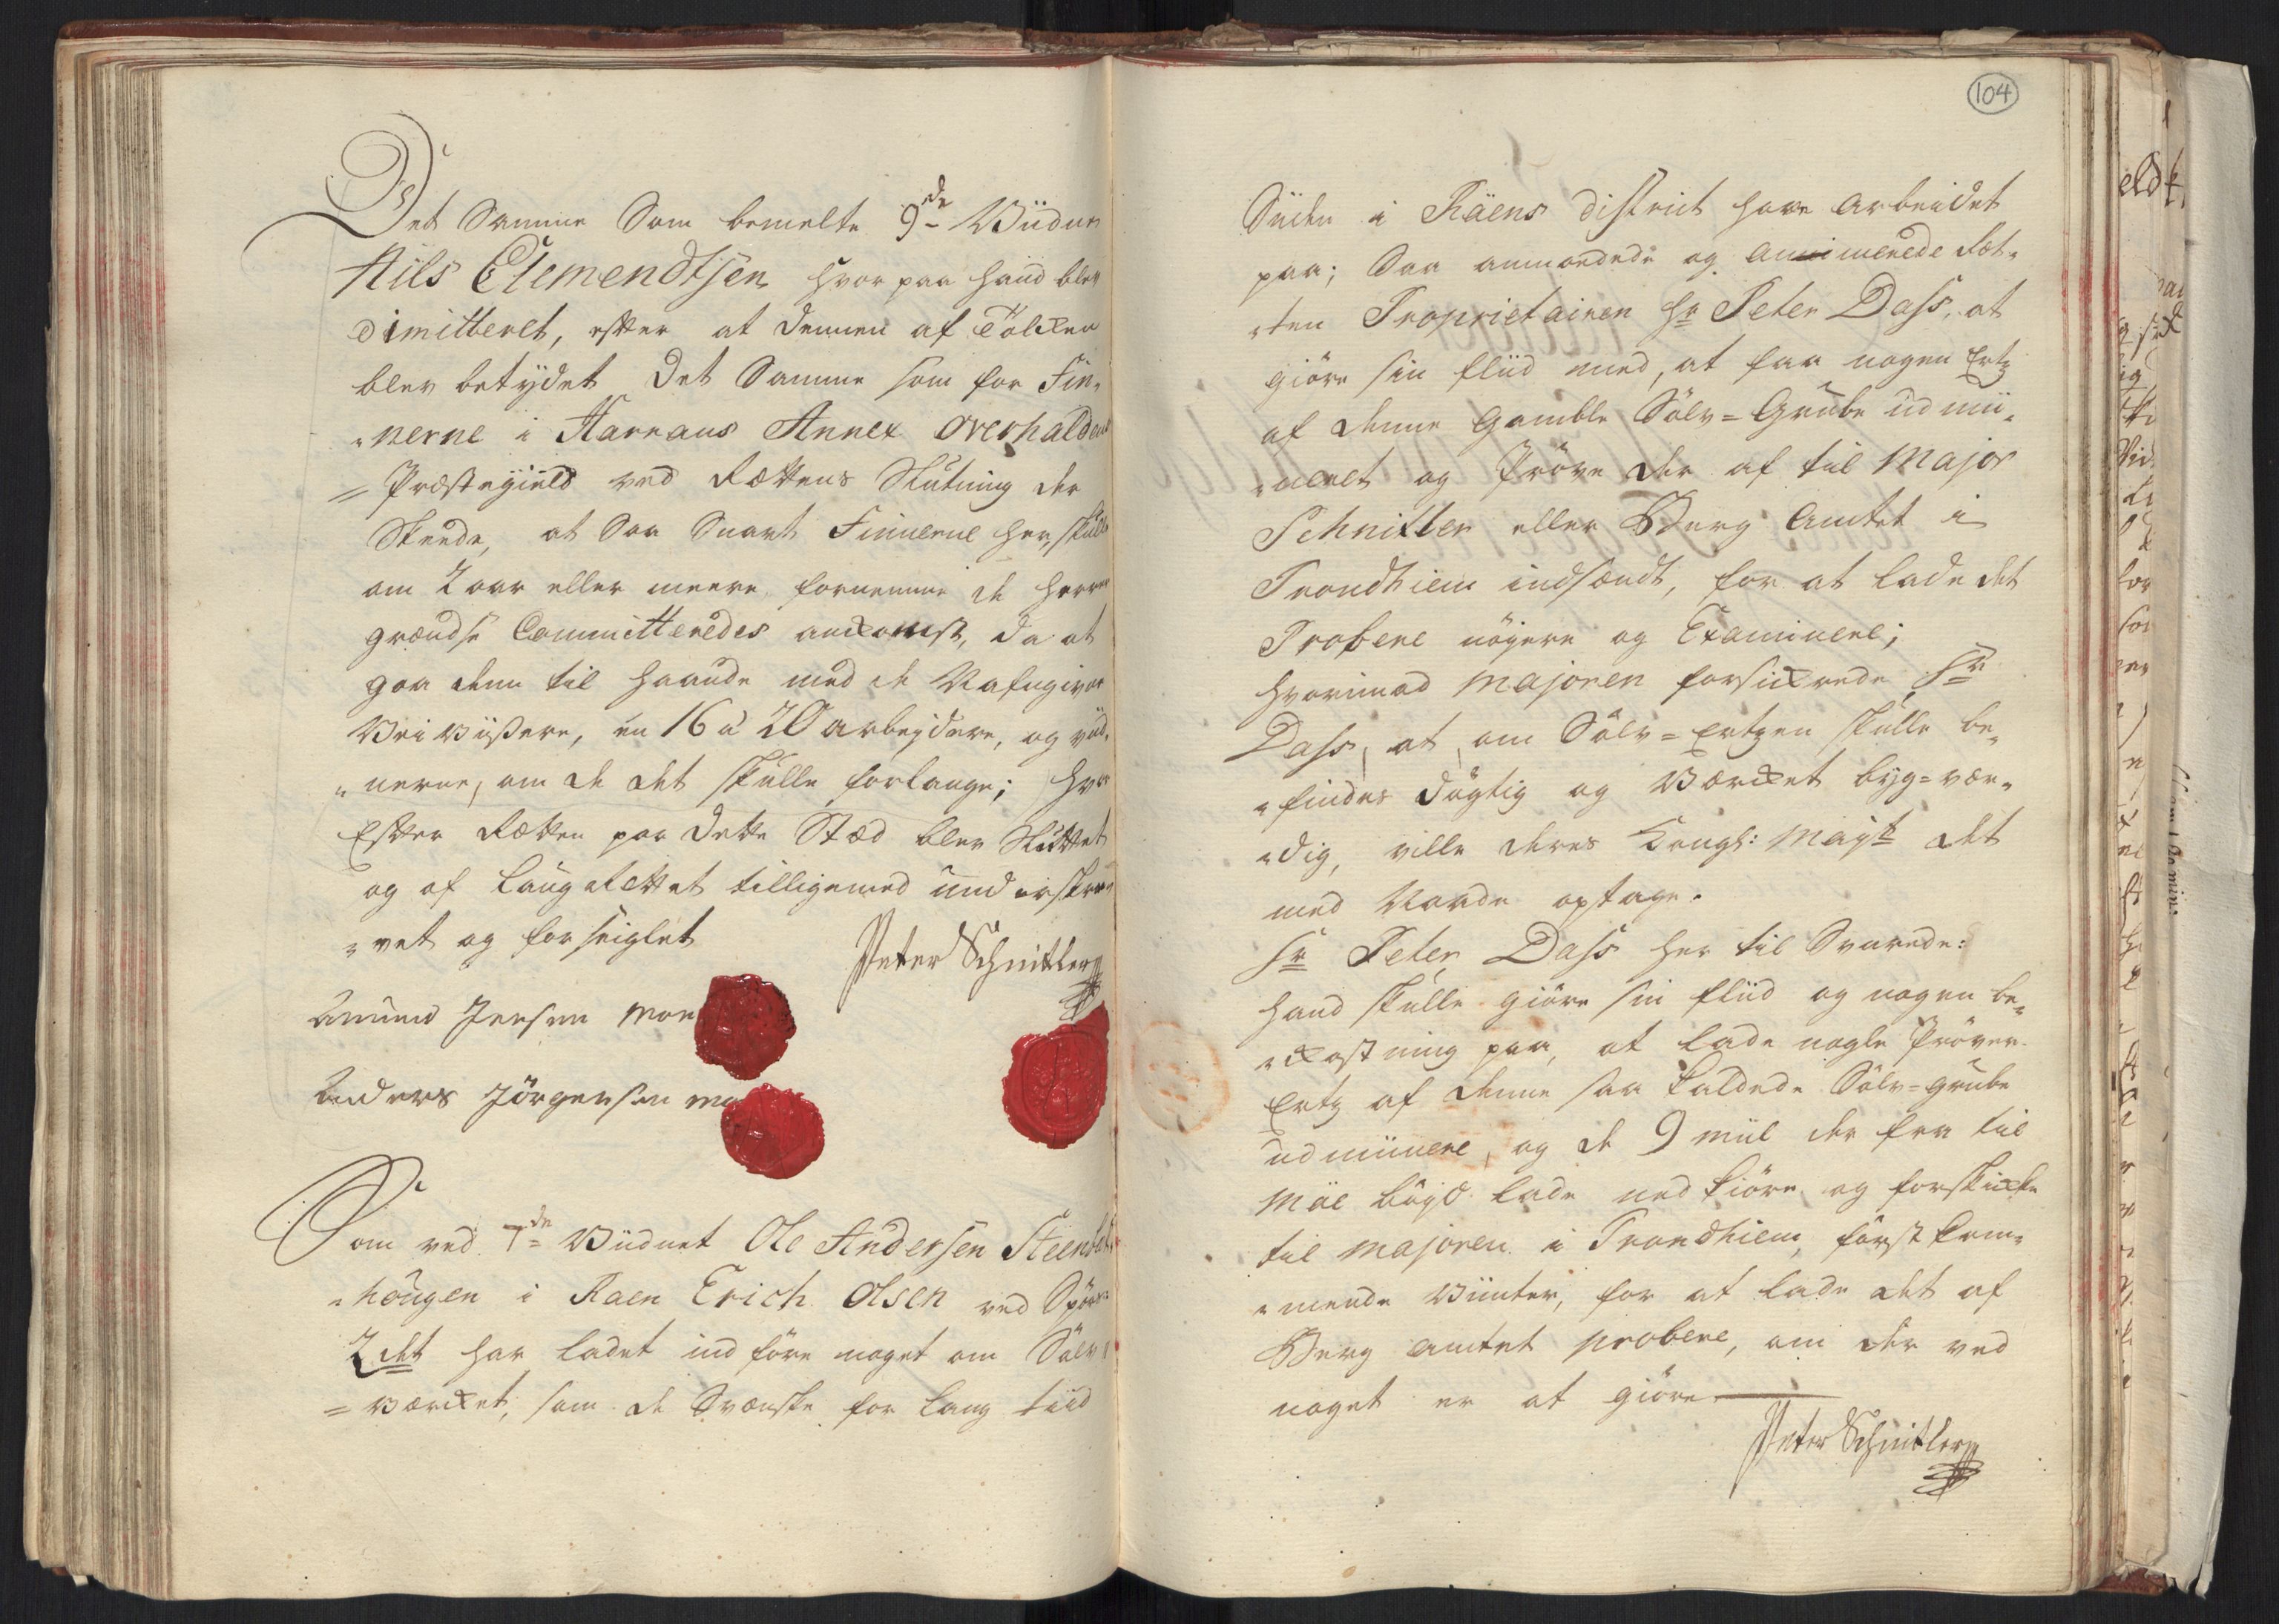 Det Samme Som bemelte 9de Viidne
Nils Clemendtsen hvorpaa hand blev
dimitteret, efter at dennem af Tolcken
blev betydet det Samme som for Fin-
"nerne i Harrans Annex Overhaldens
=Præstegield ved Rættens Slutning der
Skeede, at Saa Snart Finnerne her, skulle
om 2 aar eller meere fornemme de herrer
grændse Committeredes anckomst, da at
gaa dem til haande med de Nafngivne
Veiviisere, en 16 a 20 arbeydere, og viid-
"nerne, om de det skulle forlange; hvor
Efter Rætten paa dette Stæd blev Sluttet
og af Laugrettet tilligemed underskre-
"vet og forseiglet
Peter Schnitler
Amund Jensen
Anders Jörgensen
Som ved 7de Viidnet Ole Andersen Steenbek-
"hougen i Raen Erich Olsen ved Spørs-
2det har ladet indføre noget om Sölv
=værcket, som de Svenske for lang tiid
104
Siden i Räens district have arbeidet
paa; Saa anmodede og animerede Ret-
"ten Proprietairen Hr Peter Dass, at
giöre sin fliid med, at faa nogen Ertz
af denne gamble Sölv=Grube udmii-
"neret og Pröve der af til Major
Schnitler eller Berg Amtet i
Trondhiem indsændt, for at lade det
Probere nöyere og Examinere;
hvorimod Majoren forsickrede Sr
Dass, at om Sölv=Ertzen skulle be-
"findes dygtig og Værcket byg=vær-
"dig, ville deres Kongl: Mayt det
med Naade optage.
Sr Peter Dass her til Svarede:
hand skulle giöre sin fliid og nogen be-
"kostning paa, at lade nogle Pröver
Ertz af denne saa kaldede Sölv=grube
udminere, og de 9 miil der fra til
Möe böyd lade nedkiöre og forskicke
til Majoren i Trondhiem, först kom-
"mende Viinter, for at lade det af
Berg amtet probere, om der ved
noget er at giöre
Peter Schnitler